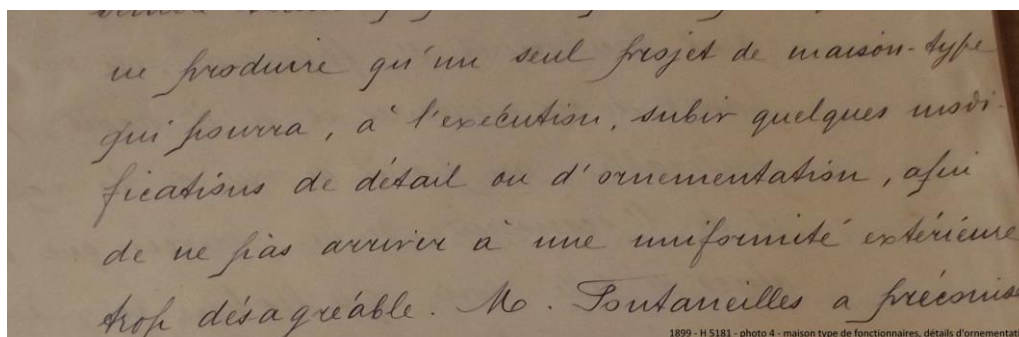 ne produire qu'un seul projet de maison-type
qui pourra, à l'exécution, subir quelques modi-
fications de détail ou d'ornementation, afin
de ne pas arriver à une uniformité extérieure
trop désagréable. M. Fontaneilles a préconisé
1899 - H 5181 - photo 4 - maison type de fonctionnaires, détails d'ornementati